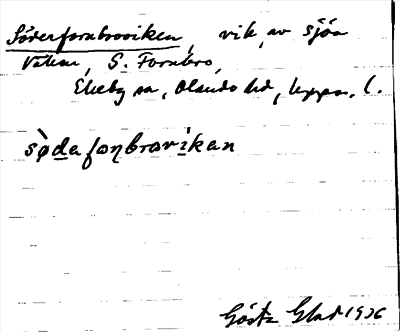 Söderfornbroviken, vik av sjön
Valen, S. Fornbro,
Ekeby sn, Olands hd, Uppsa. l.
sø̀dafoɳbrovikan
Gösta Glad 1926